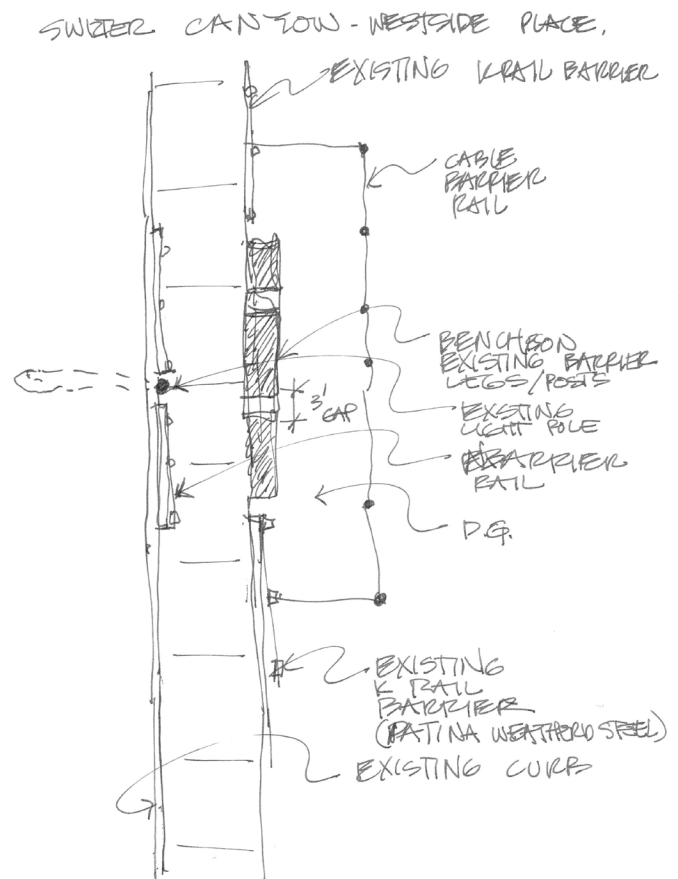 SWIZTER CANYON - WESTSIDE PLACE.
EXISTING K RAIL BARRIER
CABLE
BARRIER
RAIL
BENCH ON
EXISTING BARRIER
LEGS/POSTS
3'
GAP
EXISTING
LIGHT POLE
BARRIER
RAIL
D.G.
EXISTING
K RAIL
BARRIER
(PATINA WEATHERD STEEL)
EXISTING CURB